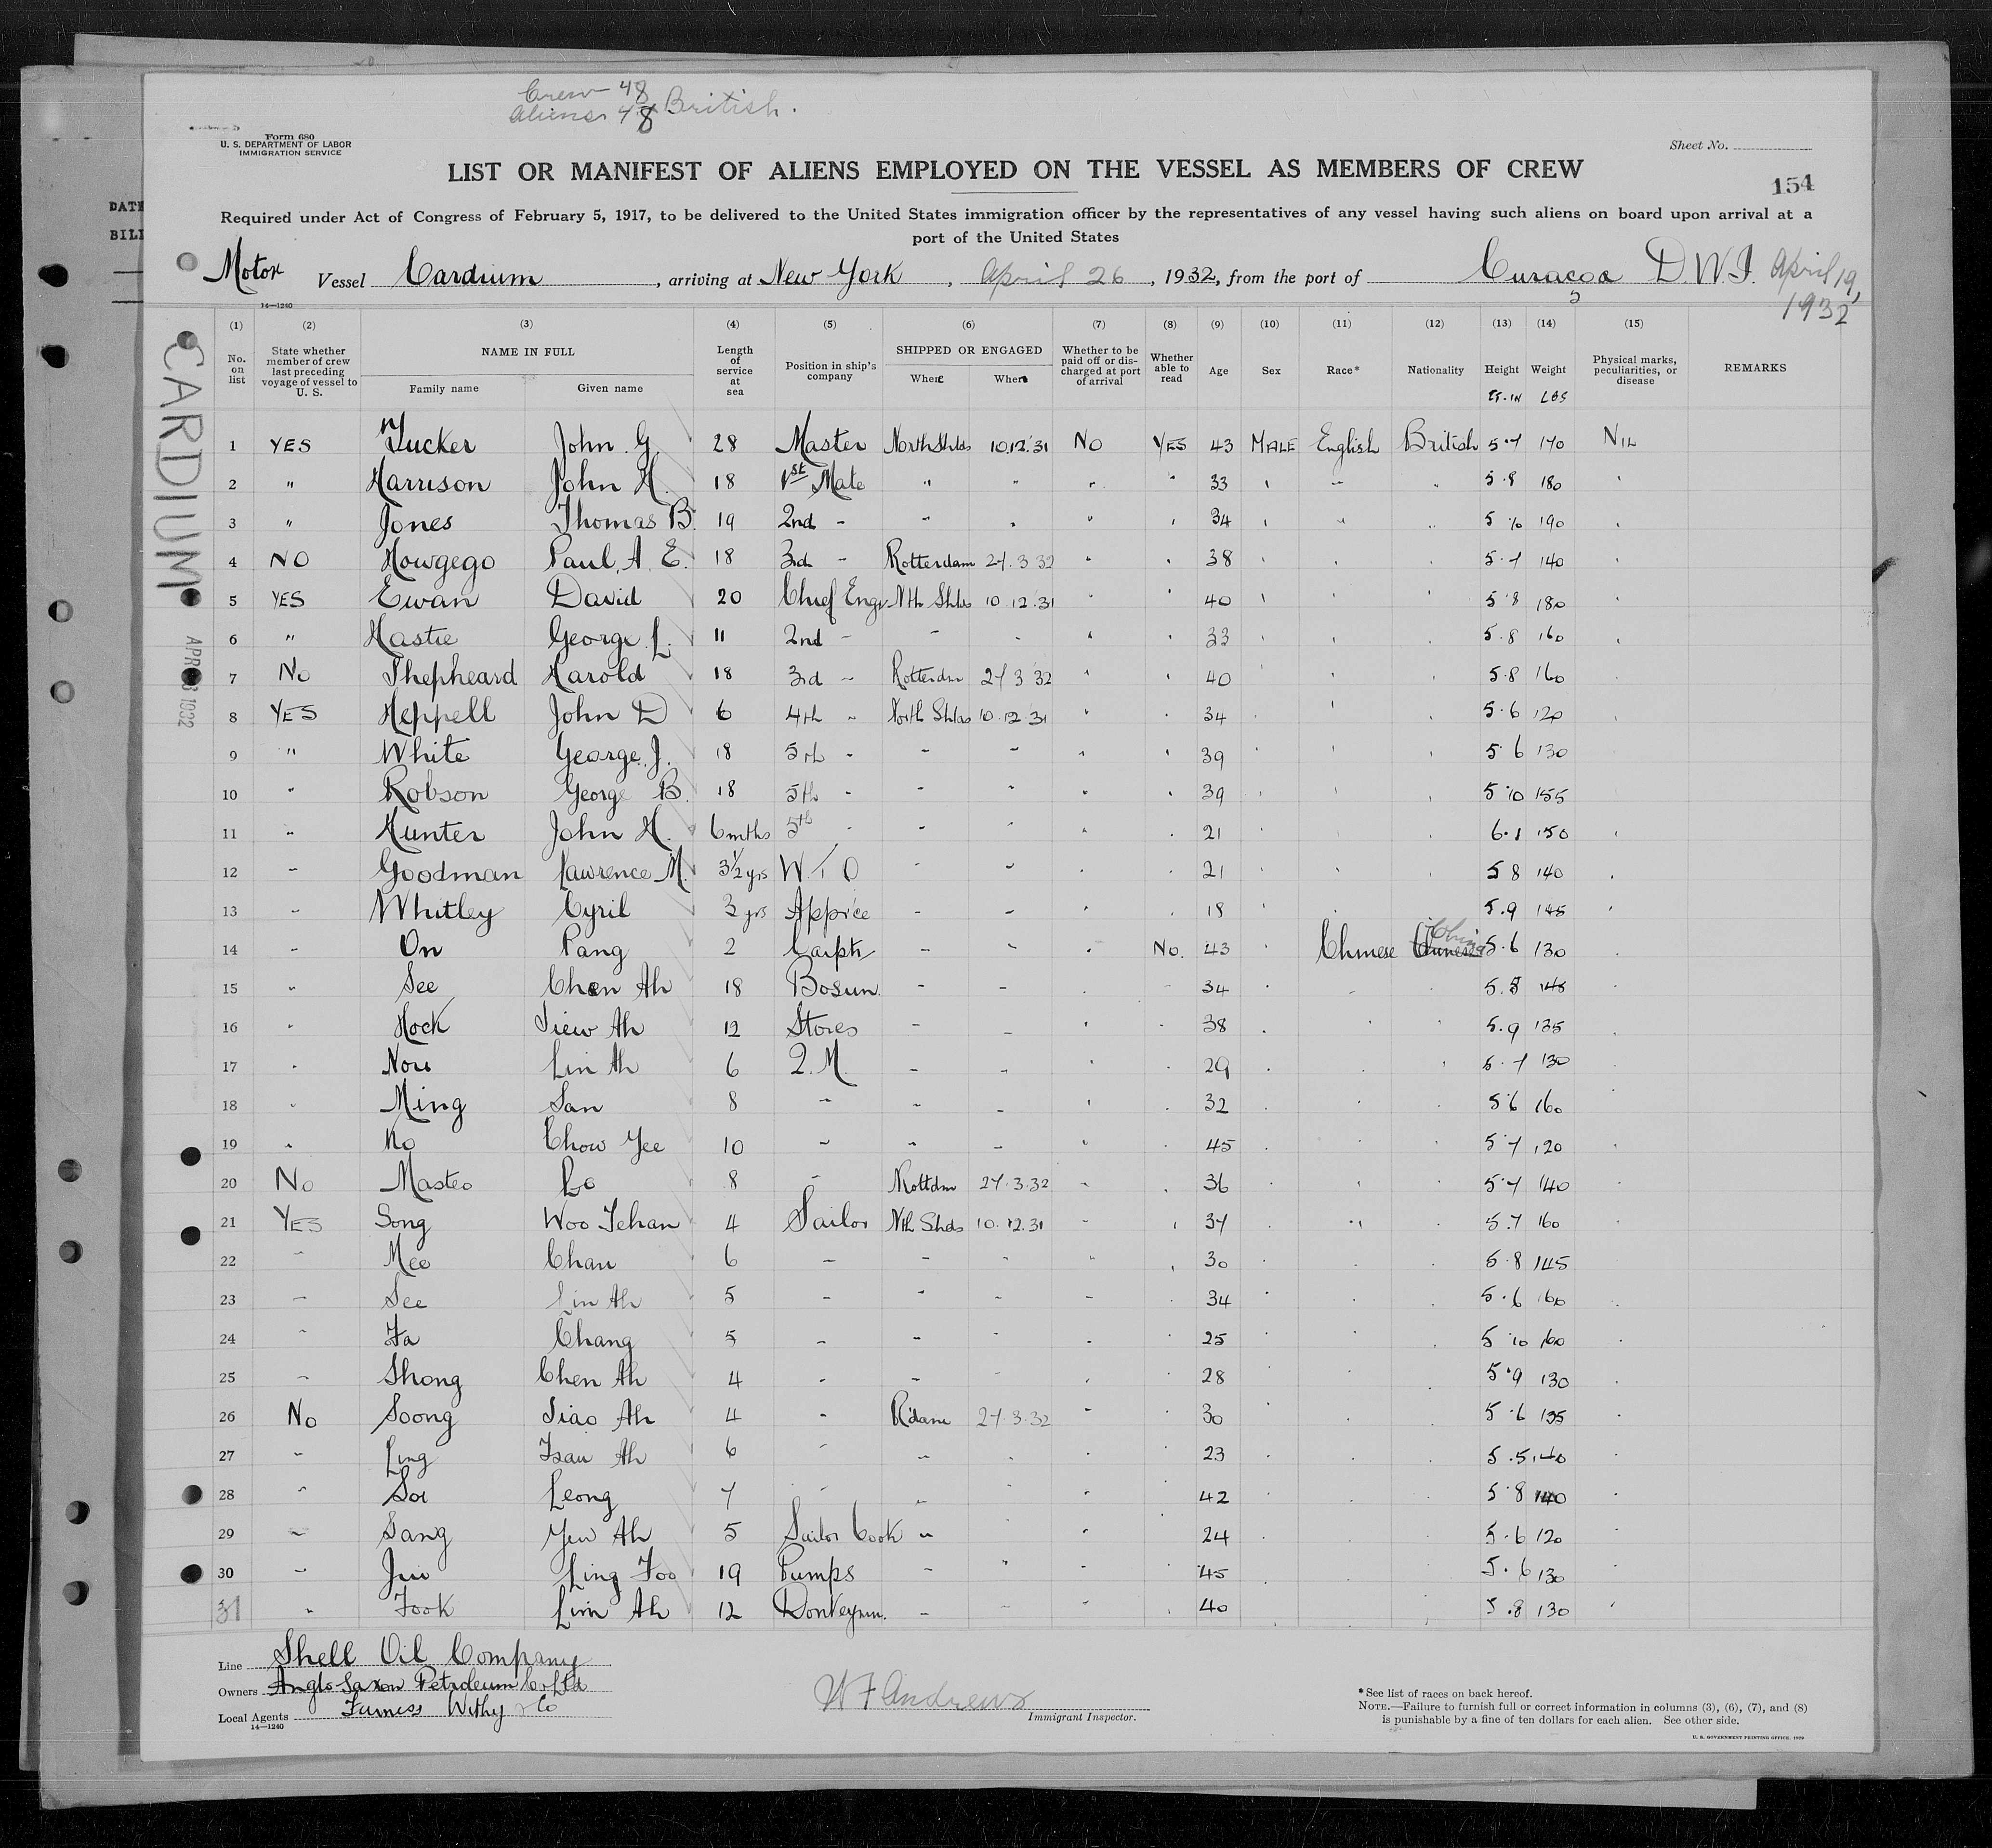 Crew 48
Aliens 48 British.
Form 680
U. S. DEPARTMENT OF LABOR
IMMIGRATION SERVICE
Sheet No.
LIST OR MANIFEST OF ALIENS EMPLOYED ON THE VESSEL AS MEMBERS OF CREW
154
Required under Act of Congress of February 5, 1917, to be delivered to the United States immigration officer by the representatives of any vessel having such aliens on board upon arrival at a
port of the United States
DATE
BILL
Motor Vessel Cardium, arriving at New York, April 26, 1932, from the port of Curacoa D.W.I. April 19,
1932
14—1240
CARDIUM
1932
(1) (2) (3) (4) (5) (6) (7) (8) (9) (10) (11) (12) (13) (14) (15)
No. on list State whether member of crew last preceding voyage of vessel to U. S. NAME IN FULL Family name Given name Length of service at sea Position in ship's company SHIPPED OR ENGAGED Where When Whether to be paid off or discharged at port of arrival Whether able to read Age Sex Race* Nationality Height Weight Physical marks, peculiarities, or disease REMARKS
FT. IN LBS
1 YES Tucker John G. 28 Master North Shlds 10.12.31 No YES 43 MALE English British 5.7 170 NIL
2 " Harrison John H. 18 1st Mate " " " " 33 " " " 5.8 180 "
3 " Jones Thomas B. 19 2nd " " " " " 34 " " " 5 10 190 "
4 NO Howgego Paul. A. E. 18 3rd " Rotterdam 27.3.32 " " 38 " " " 5.7 140 "
5 YES Ewan David 20 Chief Engr Nth Shlds 10.12.31 " " 40 " " " 5.8 180 "
6 " Hastie George L. 11 2nd " " " " " 33 " " " 5.8 160 "
7 No Shepheard Harold 18 3rd " Rotterdm 27 3 32 " " 40 " " " 5.8 160 "
8 YES Heppell John D 6 4th " North Shlds 10.12.31 " " 34 " " " 5.6 120 "
9 " White George. J. 18 5th " " " " " 39 " " " 5 6 130
10 " Robson George B. 18 5th " " " " " 39 " " " 5 10 155
11 " Hunter John H. 6 mths 5th " " " " " 21 " " " 6.1 150 "
12 " Goodman Lawrence M. 3½ yrs W. T. O " " " " 21 " " " 5 8 140 "
13 " Whitley Cyril 3 yrs App'ice " " " " 18 " " " 5.9 145 "
14 " On Pang 2 Carptr " " " No. 43 " Chinese China 5.6 130 "
15 " See Chen Ah 18 Bosun. " " " " 34 " " " 5.8 145 "
16 " Hock Siew Ah 12 Stores " " " " 38 " " " 5.9 135 "
17 " Lin Ah 6 Q.M. " " " " 29 " " " 5.7 130 "
18 " Ming San 8 " " " " " 32 " " " 5 6 160 "
19 " Ho Chow Yee 10 " " " " " 45 " " " 5 7 120 "
20 No Masteo Lo 8 " Rottdm 27.3.32 " " 36 " " " 5.7 140 "
21 YES Song Woo Tehan 4 Sailor Nth Shds 10.12.31 " " 37 " " " 5.7 160 "
22 " Chan 6 " " " " " 30 " " " 5.8 145 "
23 " See Lin Ah 5 " " " " " 34 " " " 5.6 160 "
24 " Fa Chang 5 " " " " " 25 " " " 5 10 160 "
25 " Shong Chen Ah 4 " " " " " 28 " " " 5.9 130 "
26 No Soong Siao Ah 4 " R'dam 27.3.32 " " 30 " " " 5.6 135 "
27 " Ling Tsau Ah 6 " " " " " 23 " " " 5.5 140 "
28 " Leong 7 " " " " " 42 " " " 5.8 140 "
29 " Sang Yew Ah 5 Sailor Cook " " " " 24 " " " 5.6 120 "
30 " Ling Foo 19 Pumps " " " " 45 " " " 5.6 130 "
31 " Fook Lim Ah 12 Donkeymn. " " " " 40 " " " 5.8 130 "
Line Shell Oil Company
Owners Anglo Saxon Petroleum Co Ltd
Local Agents Furness Withy & Co
14—1240
W F Andrews
Immigrant Inspector.
*See list of races on back hereof.
NOTE.—Failure to furnish full or correct information in columns (3), (6), (7), and (8)
is punishable by a fine of ten dollars for each alien. See other side.
U. S. GOVERNMENT PRINTING OFFICE.